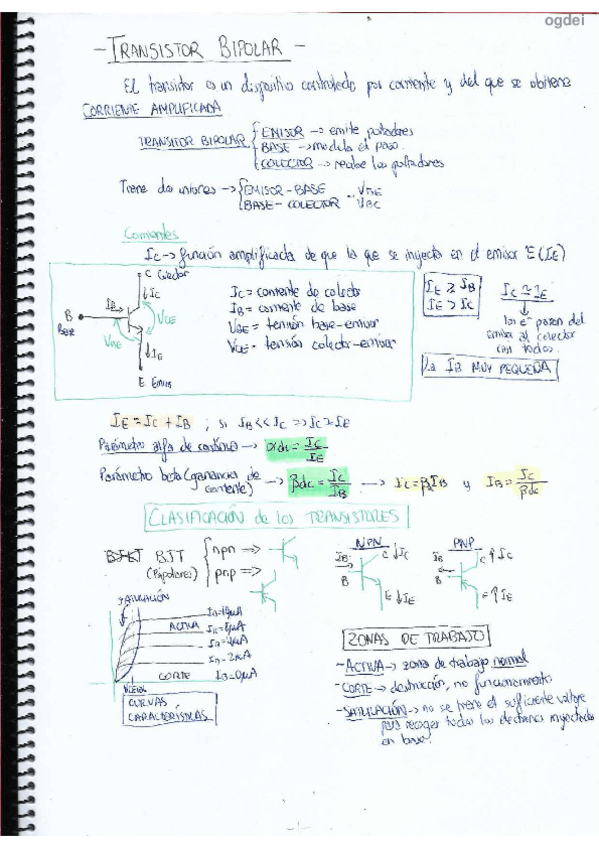 ogdei
- TRANSISTOR BIPOLAR -
El transistor es un dispositivo controlado por corriente y del que se obtiene
CORRIENTE AMPLIFICADA
TRANSISTOR BIPOLAR
EMISOR -> emite portadores
BASE -> modula el paso.
COLECTOR -> recibe los portadores
Tiene dos uniones ->
EMISOR - BASE
BASE - COLECTOR
VBC
Corrientes
IC -> función amplificada de que la que se inyecta en el emisor E (IE)
C Colector
IC
IB
B
Base
VCE
VBE
IE
E Emisor
IC = corriente de colector
IB = corriente de base
VBE = tensión base-emisor
VCE = tensión colector-emisor
IE > IB
IE > IC
IC ≅ IE
los e⁻ pasan del
emisor al colector
casi todos.
La IB MUY PEQUEÑA
IE = IC + IB ; si IB << IC => IC ≈ IE
Parámetro alfa de continua -> αdc = IC/IE
Parámetro beta (ganancia de corriente) -> βdc = IC/IB -> IC = β IB y IB = IC/βdc
CLASIFICACIÓN de los TRANSISTORES
BJT
(Bipolares)
npn =>
pnp =>
NPN
IB
B
C
↓IC
E ↓IE
PNP
IB
B
C ↑IC
↑IE
SATURACIÓN
ACTIVA
IB=8μA
IB=2μA
CORTE
IB=0μA
CURVAS
CARACTERÍSTICAS
ZONAS DE TRABAJO
- ACTIVA -> zona de trabajo normal
- CORTE -> destrucción, no funcionamiento
- SATURACIÓN -> no se tiene el suficiente voltaje
para recoger todos los electrones inyectados
en base.
-1-